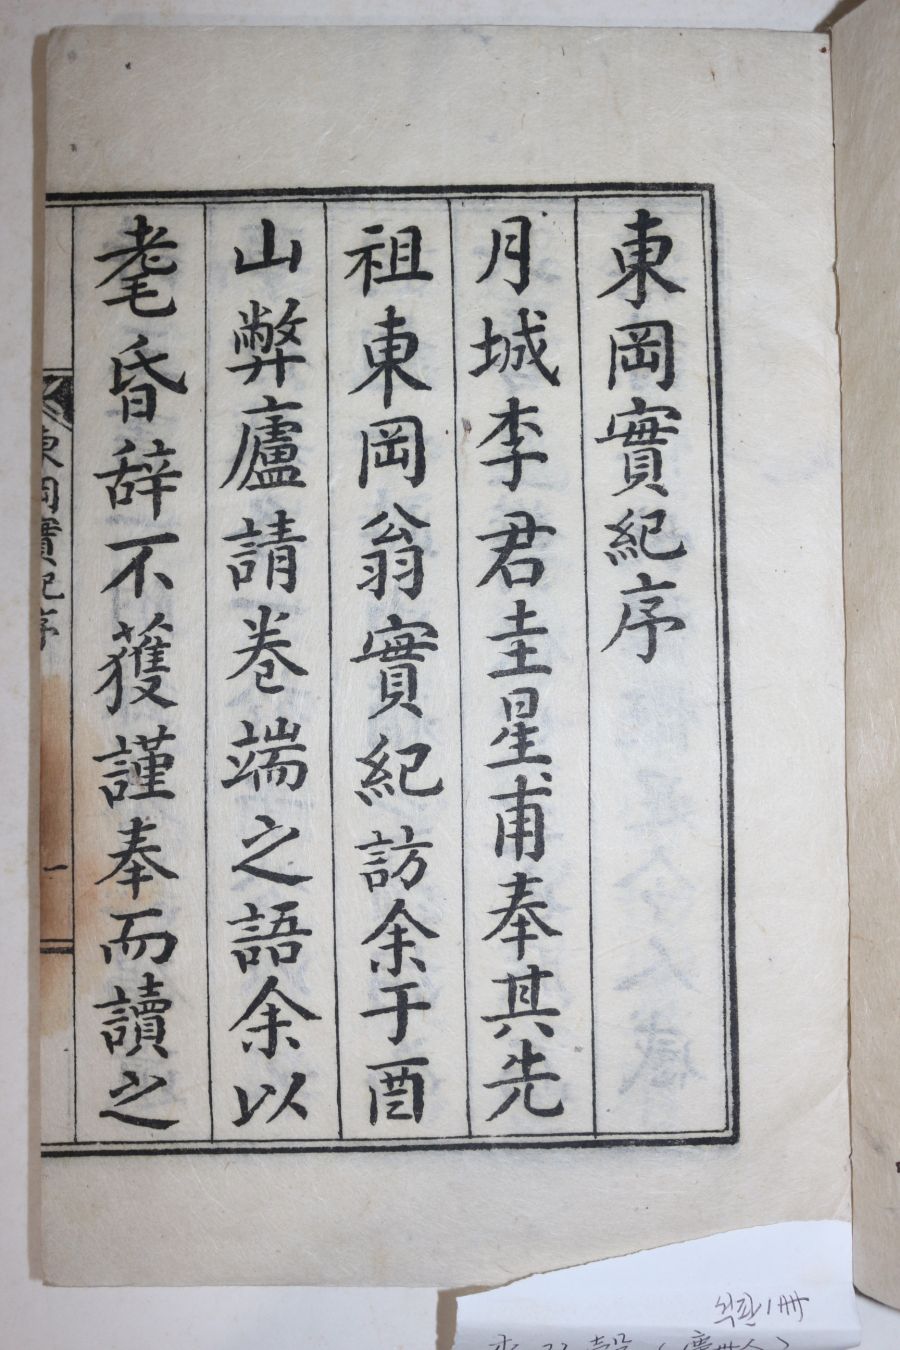 東岡實紀序
月城李君圭星甫奉其先
祖東岡翁實紀訪余于酉
山弊廬請卷端之語余以
耄昏辞不獲謹奉而讀之
東岡實紀序
一
석판1冊